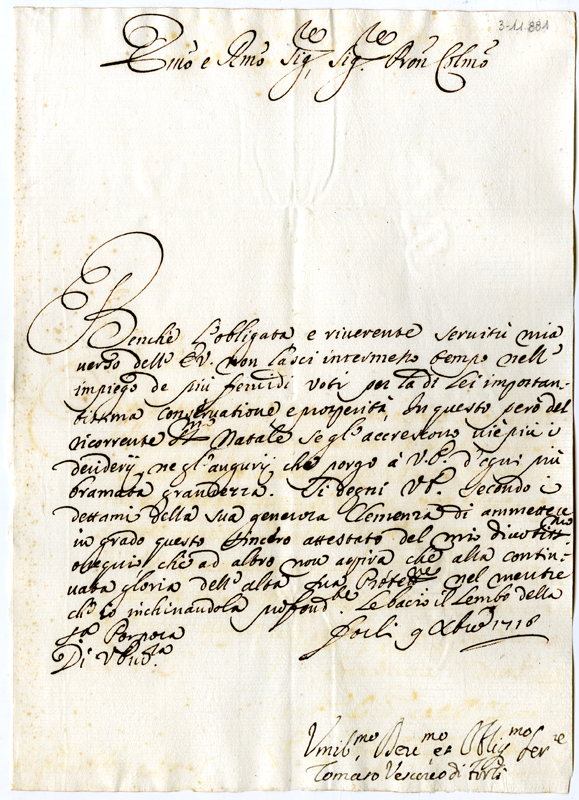 3-11-881
Emo e Rmo Sig.re Sig.re Pron Colmo
Benche l'obligata e riverente servitù mia
verso dell' EV. non lasci intermesso tempo nell'
impiego de più fervidi voti per la di lei importan-
tissima conservatione e prosperità, In questo però del
ricorrente Natale se gl'accrescono viè più i
desiderij, ne gl'augurij, che porgo à V.E. d'ogni più
bramata grandezza. Si degni VE. secondo i
dettami della sua generosa Clemenza di ammettere
in grado questo sincero attestato del mio divotissmo
ossequio che ad altro non aspira che alla contin-
uata gloria dell' alta sua Protene nel mentre
ch'io inchinandola profondte Le bacio il Lembo della
Sa Porpora
Forlì 9 Xbre 1718
Di V Emza
Vmilmo Devmo et Obligmo serre
Tomaso Vescovo di Forlì